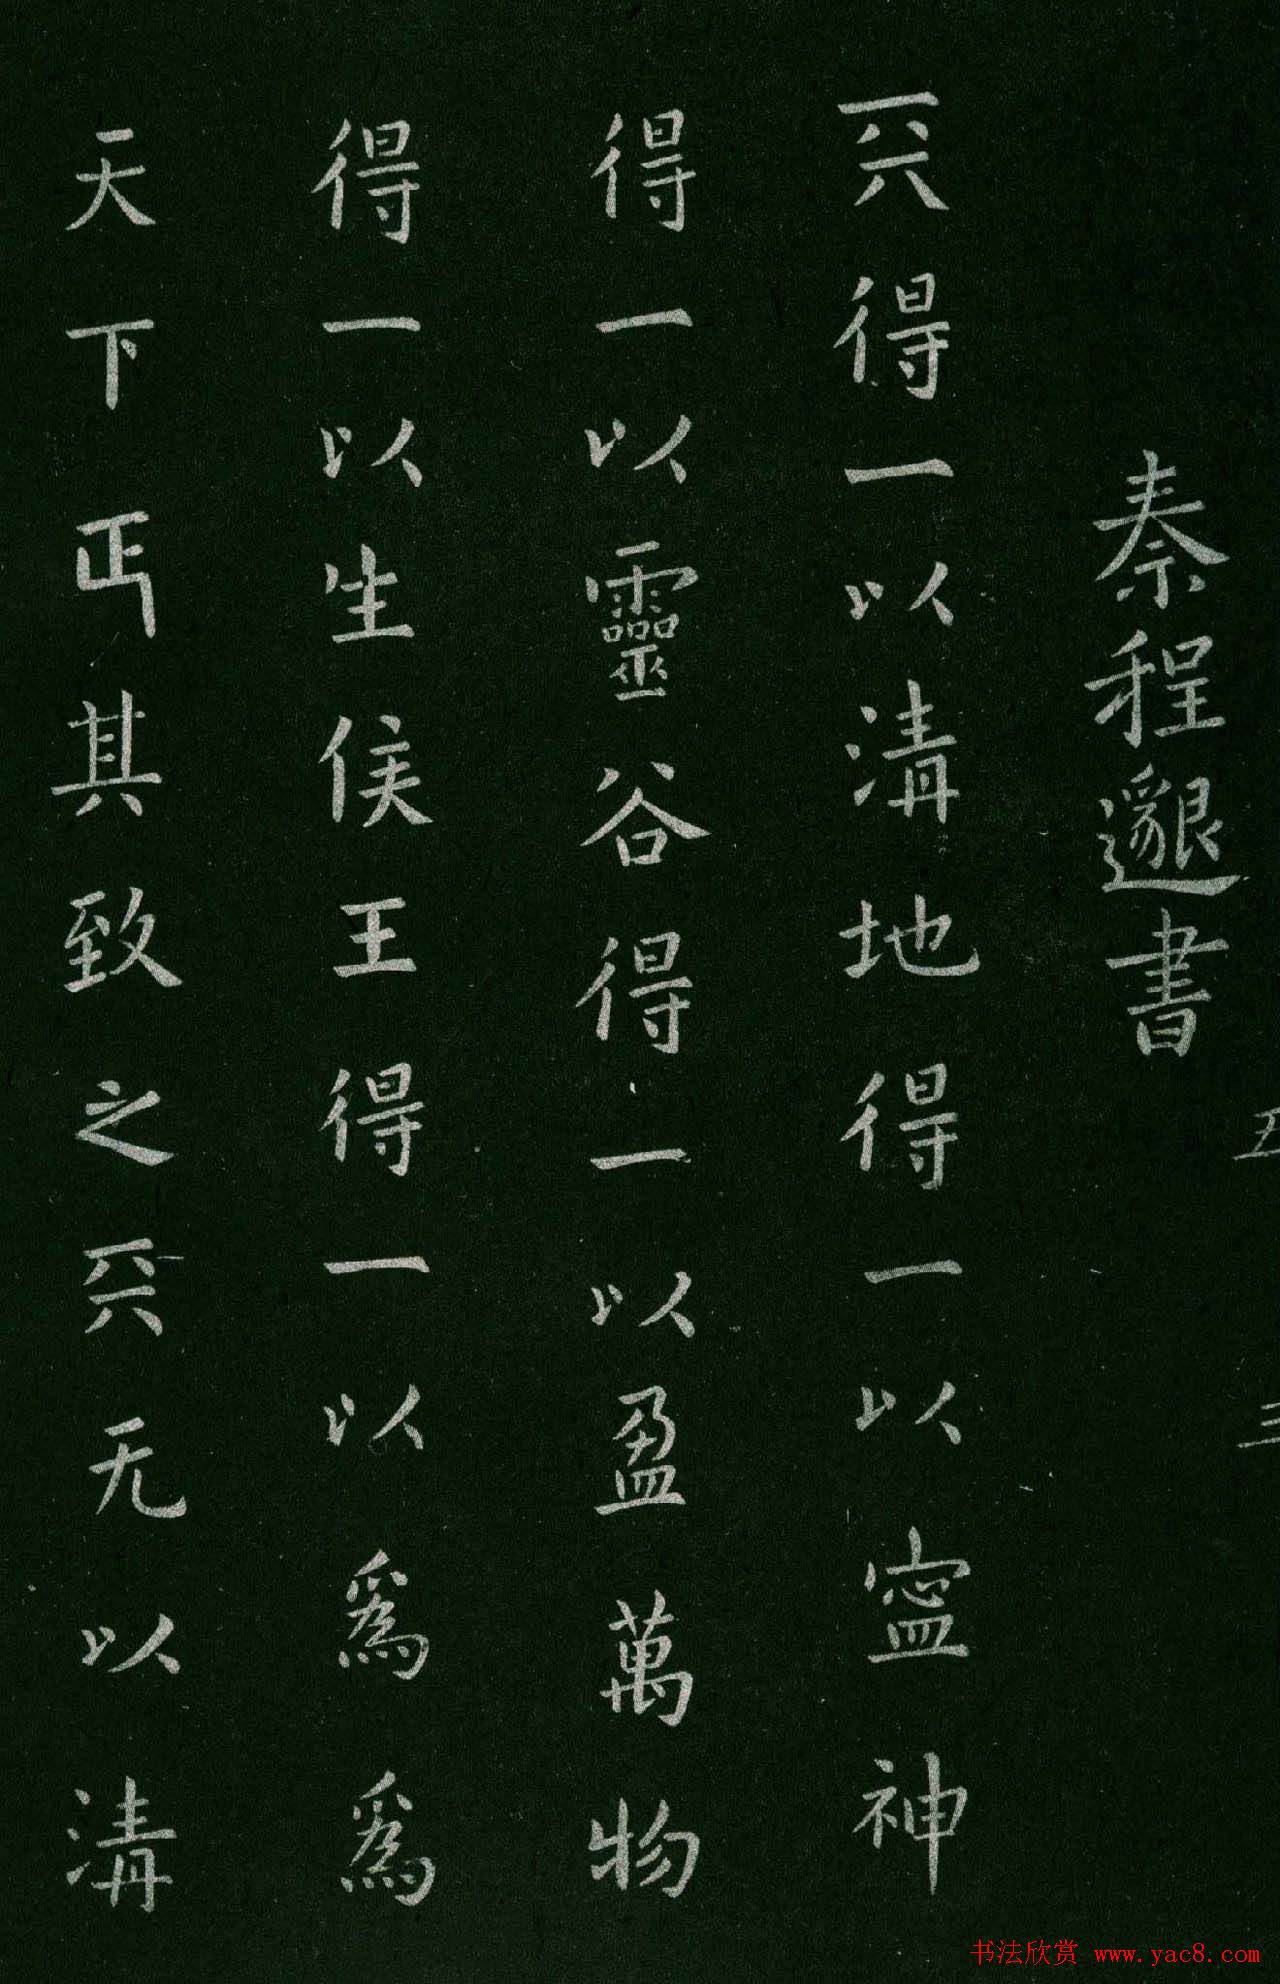 秦程邈書
兲得一以清地得一以寍神
得一以靈谷得一以盈萬物
得一以生侯王得一以爲爲
天下正其致之兲无以清
书法欣赏 www.yac8.com